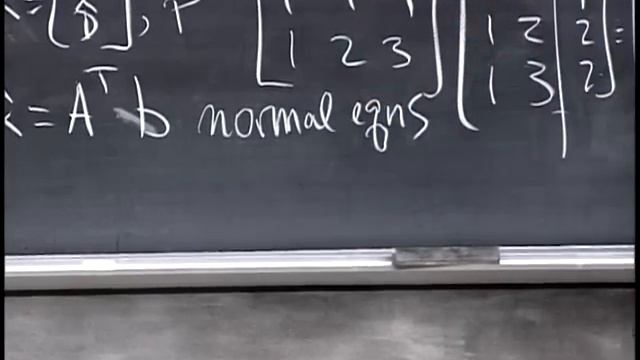 = [ D̂ ], P [ 1 1 1
1 2 3 ] [ 1 2 | 2
1 3 | 2 ] =
= Aᵀ b normal eqns